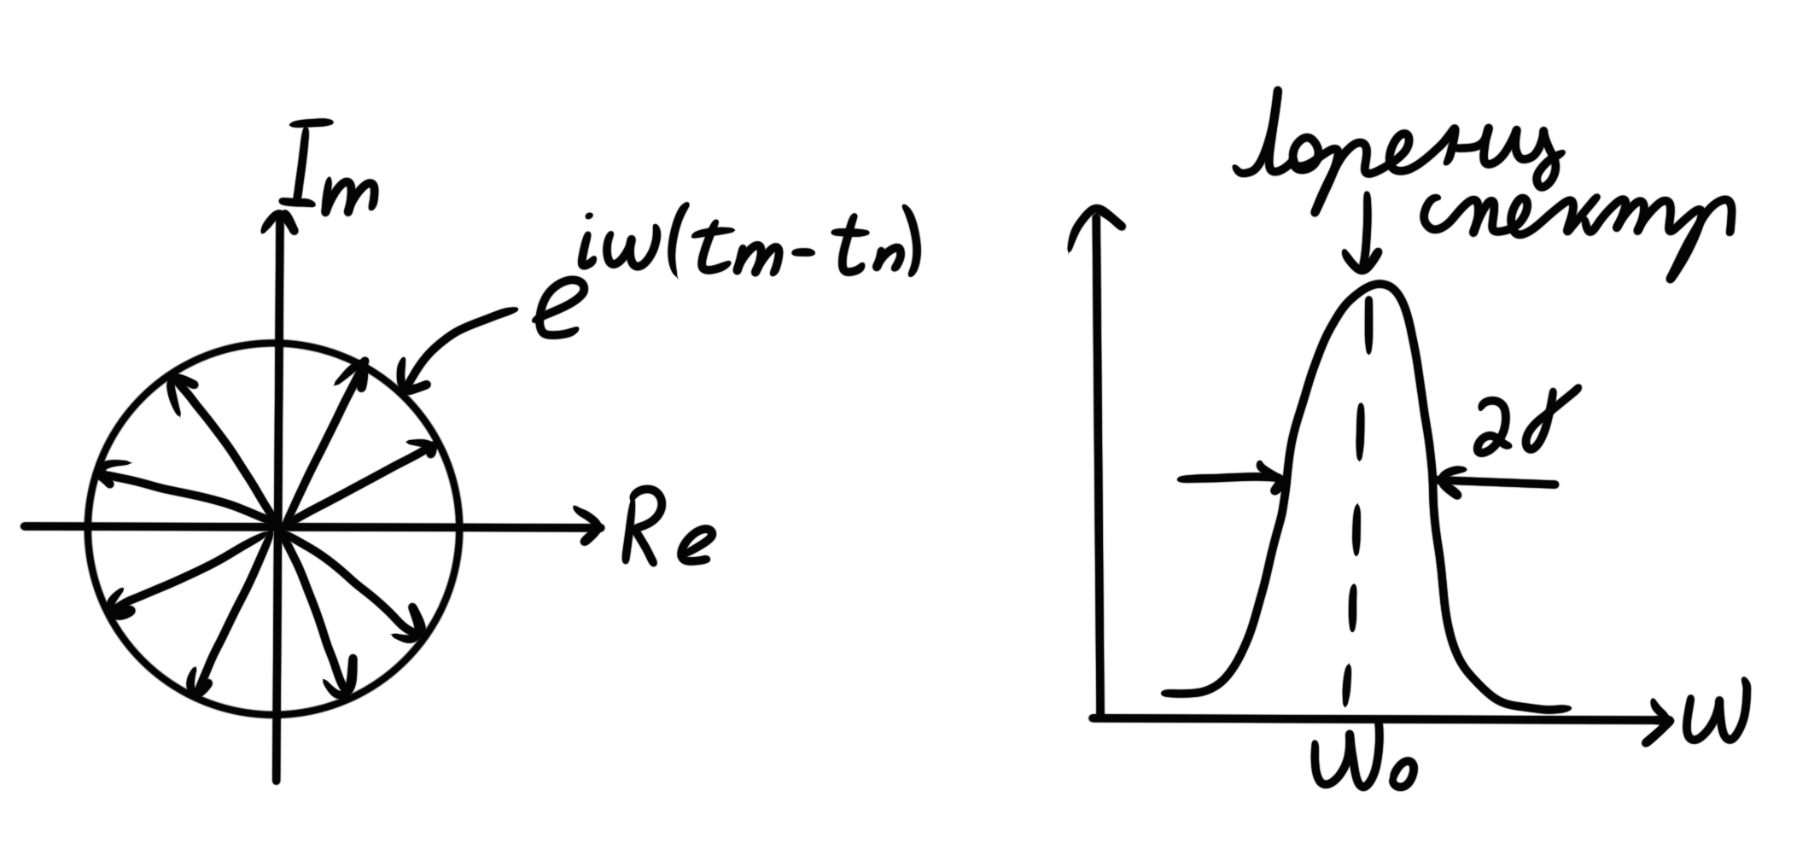 Im
e^{iω(tm-tn)}
Re
Лоренц
спектр
2γ
ω
ω₀